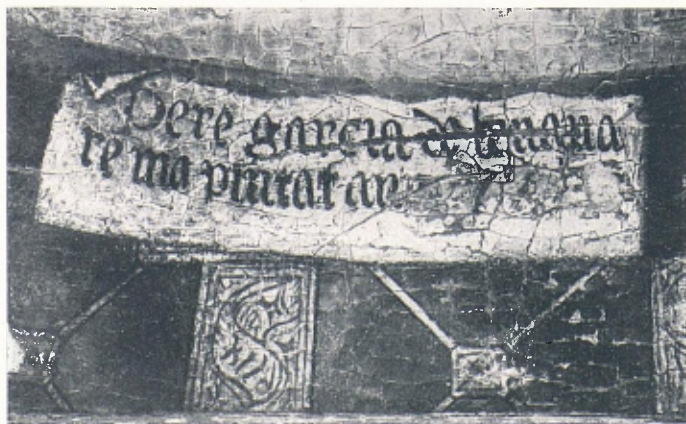 Pere garcia de benava
re ma pintat